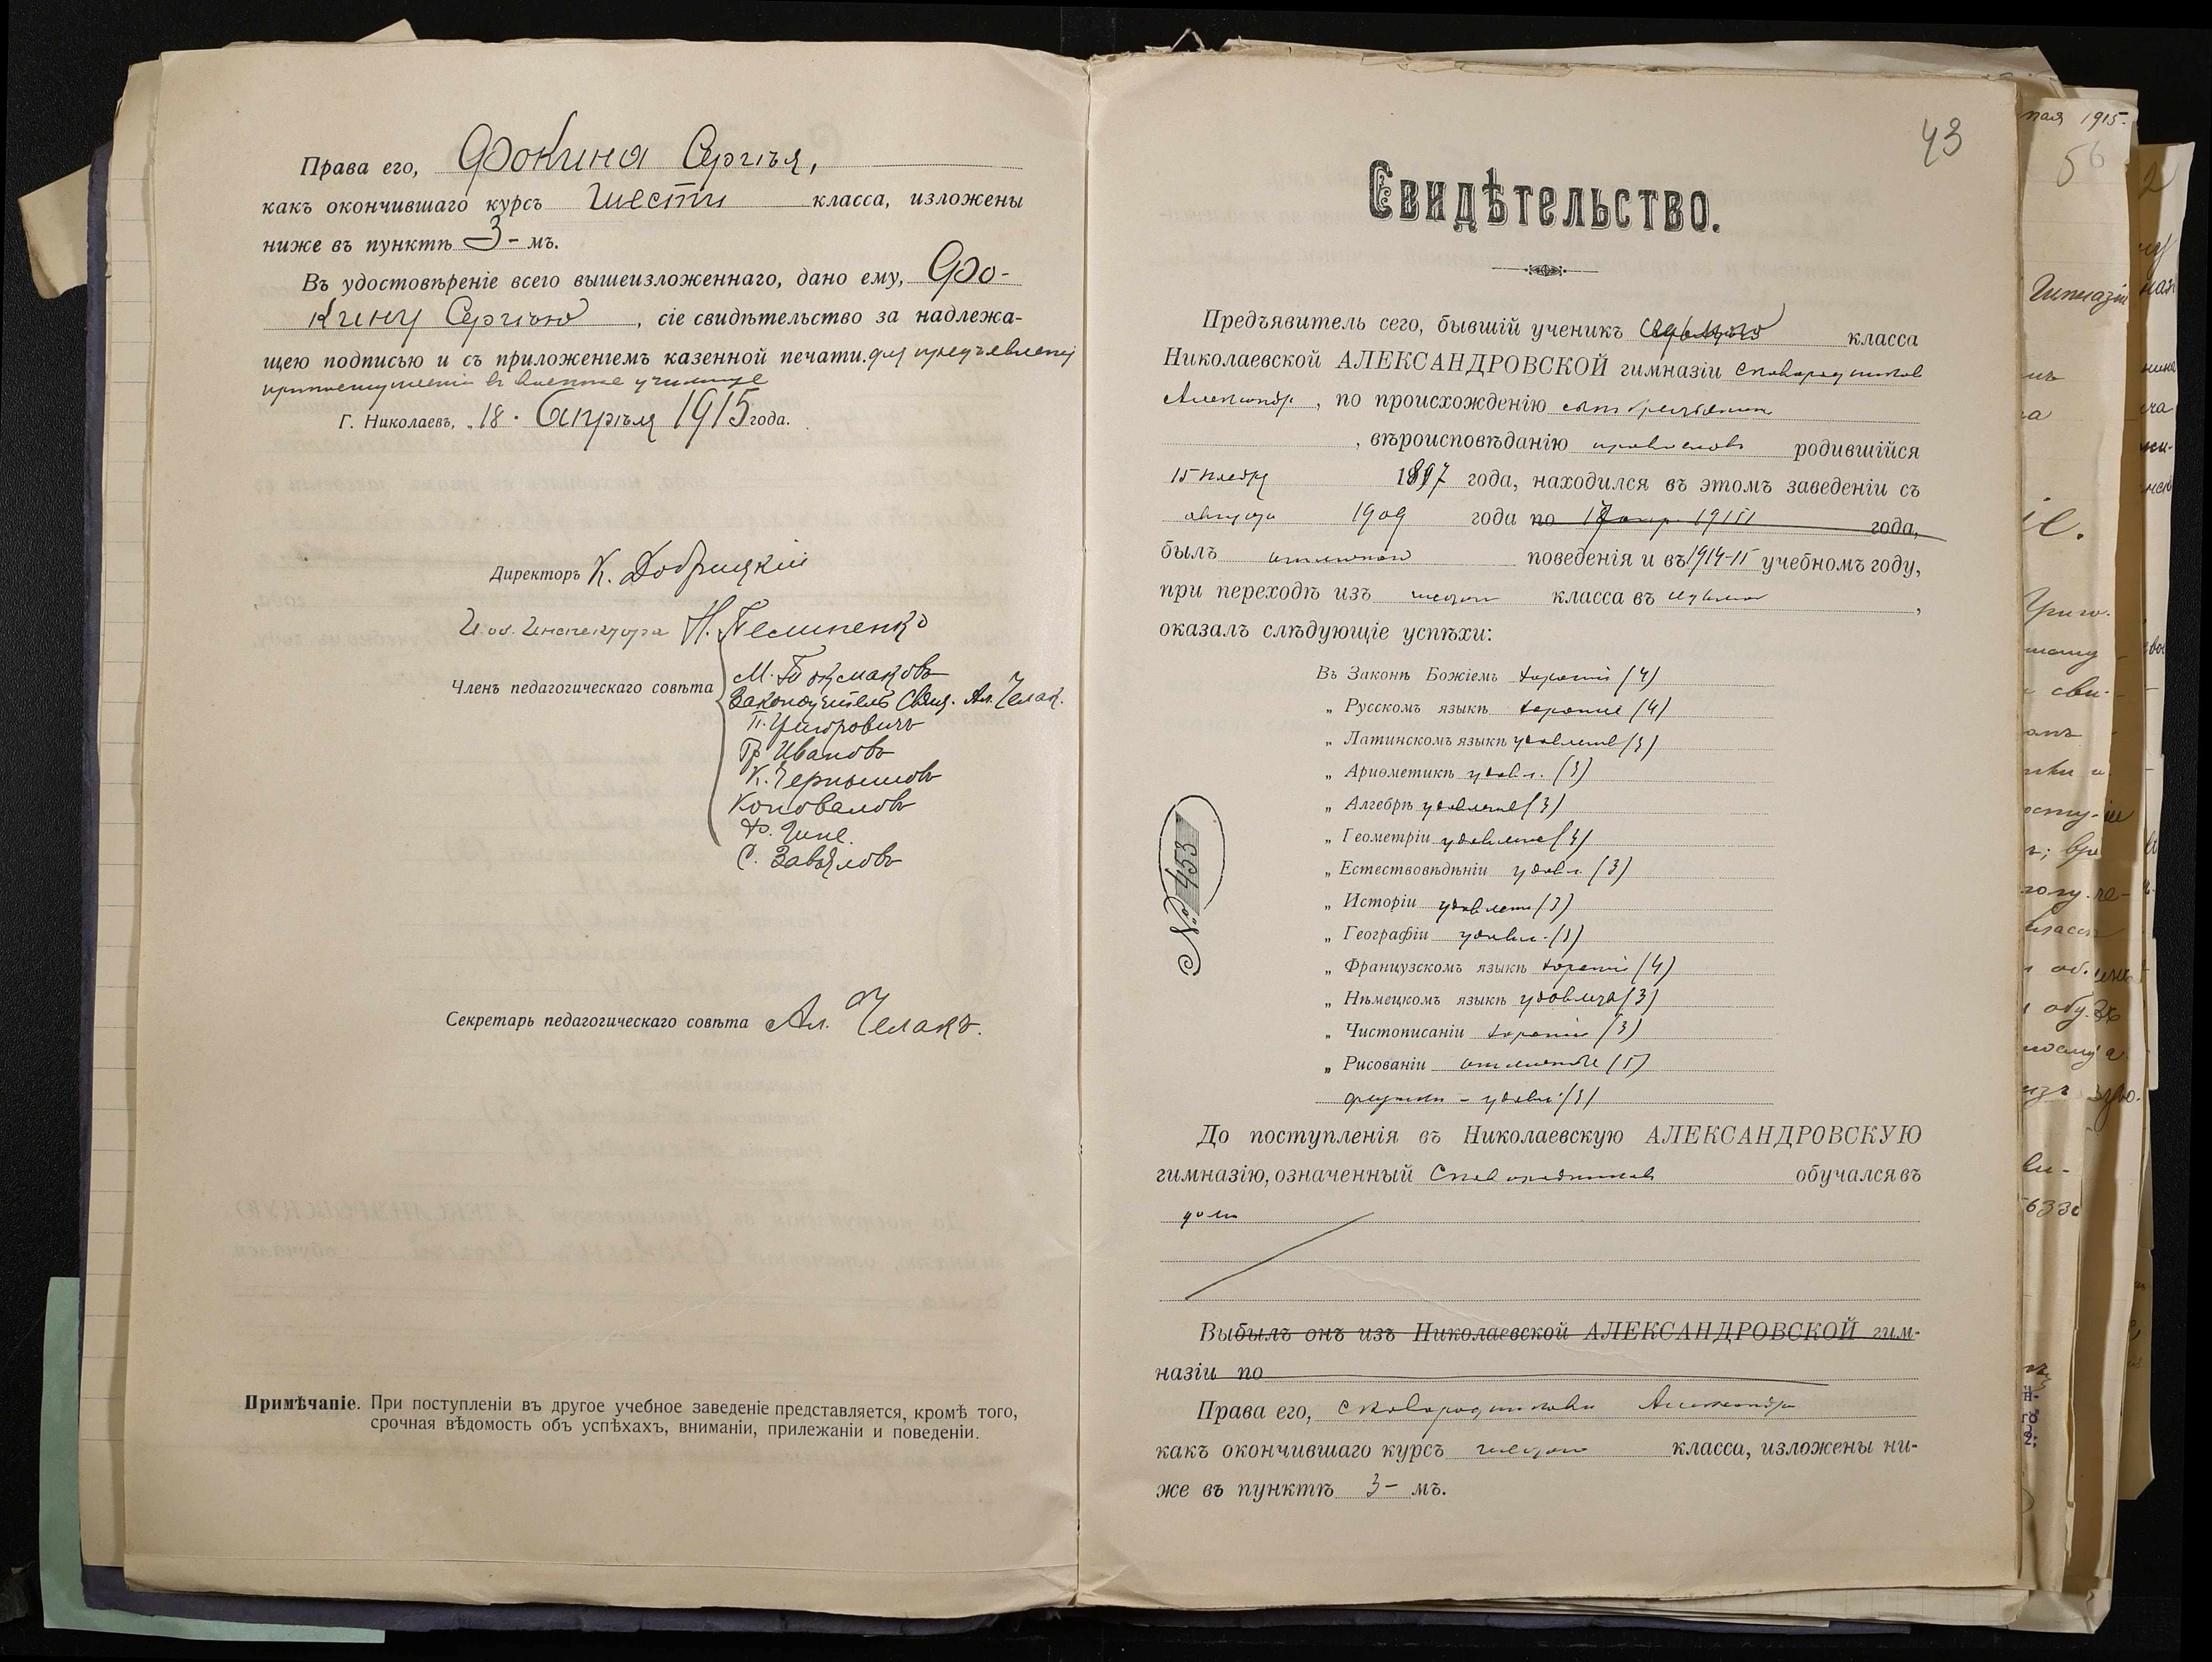 Права его, Фокина Сергѣя,
какъ окончившаго курсъ шести класса, изложены
ниже въ пунктѣ 3-мъ.
Въ удостовѣреніе всего вышеизложеннаго, дано ему, Фо-
кину Сергѣю, сіе свидѣтельство за надлежа-
щею подписью и съ приложеніемъ казенной печати. для предъявленія
при поступленіи въ военное училище
Г. Николаевъ, „18. Апрѣля 1915 года.
Директоръ К. Добрицкій
И. об. Инспектора Н.
Членъ педагогическаго совѣта
М. Токмаковъ
Законоучитель Свящ. Ал. Челак.
П.
Гр. Ивановъ
К. Чернышовъ
Коноваловъ
С. Завьяловъ
Секретарь педагогическаго совѣта Ал. Челакъ.
Примѣчаніе. При поступленіи въ другое учебное заведеніе представляется, кромѣ того,
срочная вѣдомость объ успѣхахъ, вниманіи, прилежаніи и поведеніи.
43
Свидѣтельство.
Предъявитель сего, бывшій ученикъ класса
Николаевской АЛЕКСАНДРОВСКОЙ гимназіи Сковородниковъ
Александръ, по происхожденію сынъ
, вѣроисповѣданію православн родившійся
15 1897 года, находился въ этомъ заведеніи съ
августа 1909 года по 18 апр. 1915 года,
былъ отличнаго поведенія и въ 1914-15 учебномъ году,
при переходѣ изъ шестого класса въ седьмой,
оказалъ слѣдующіе успѣхи:
Въ Законѣ Божіемъ хорошіе (4)
„ Русскомъ языкѣ хорошіе (4)
„ Латинскомъ языкѣ удовлетв (3)
„ Ариѳметикѣ удовл. (3)
„ Алгебрѣ удовлетв (3)
„ Геометріи удовлетв (3)
„ Естествовѣдѣніи удовл. (3)
„ Исторіи удовлетв (3)
„ Географіи удовл. (3)
„ Французскомъ языкѣ хорошіе (4)
„ Нѣмецкомъ языкѣ удовлетв (3)
„ Чистописаніи хорошіе (3)
„ Рисованіи отличные (5)
физики - удовл. (3)
№ 453
До поступленія въ Николаевскую АЛЕКСАНДРОВСКУЮ
гимназію, означенный Сковородниковъ обучался въ
дома
Выбылъ онъ изъ Николаевской АЛЕКСАНДРОВСКОЙ гим-
назіи по
Права его, Сковородникова Александра
какъ окончившаго курсъ шестого класса, изложены ни-
же въ пунктѣ 3-мъ.
1915.
56